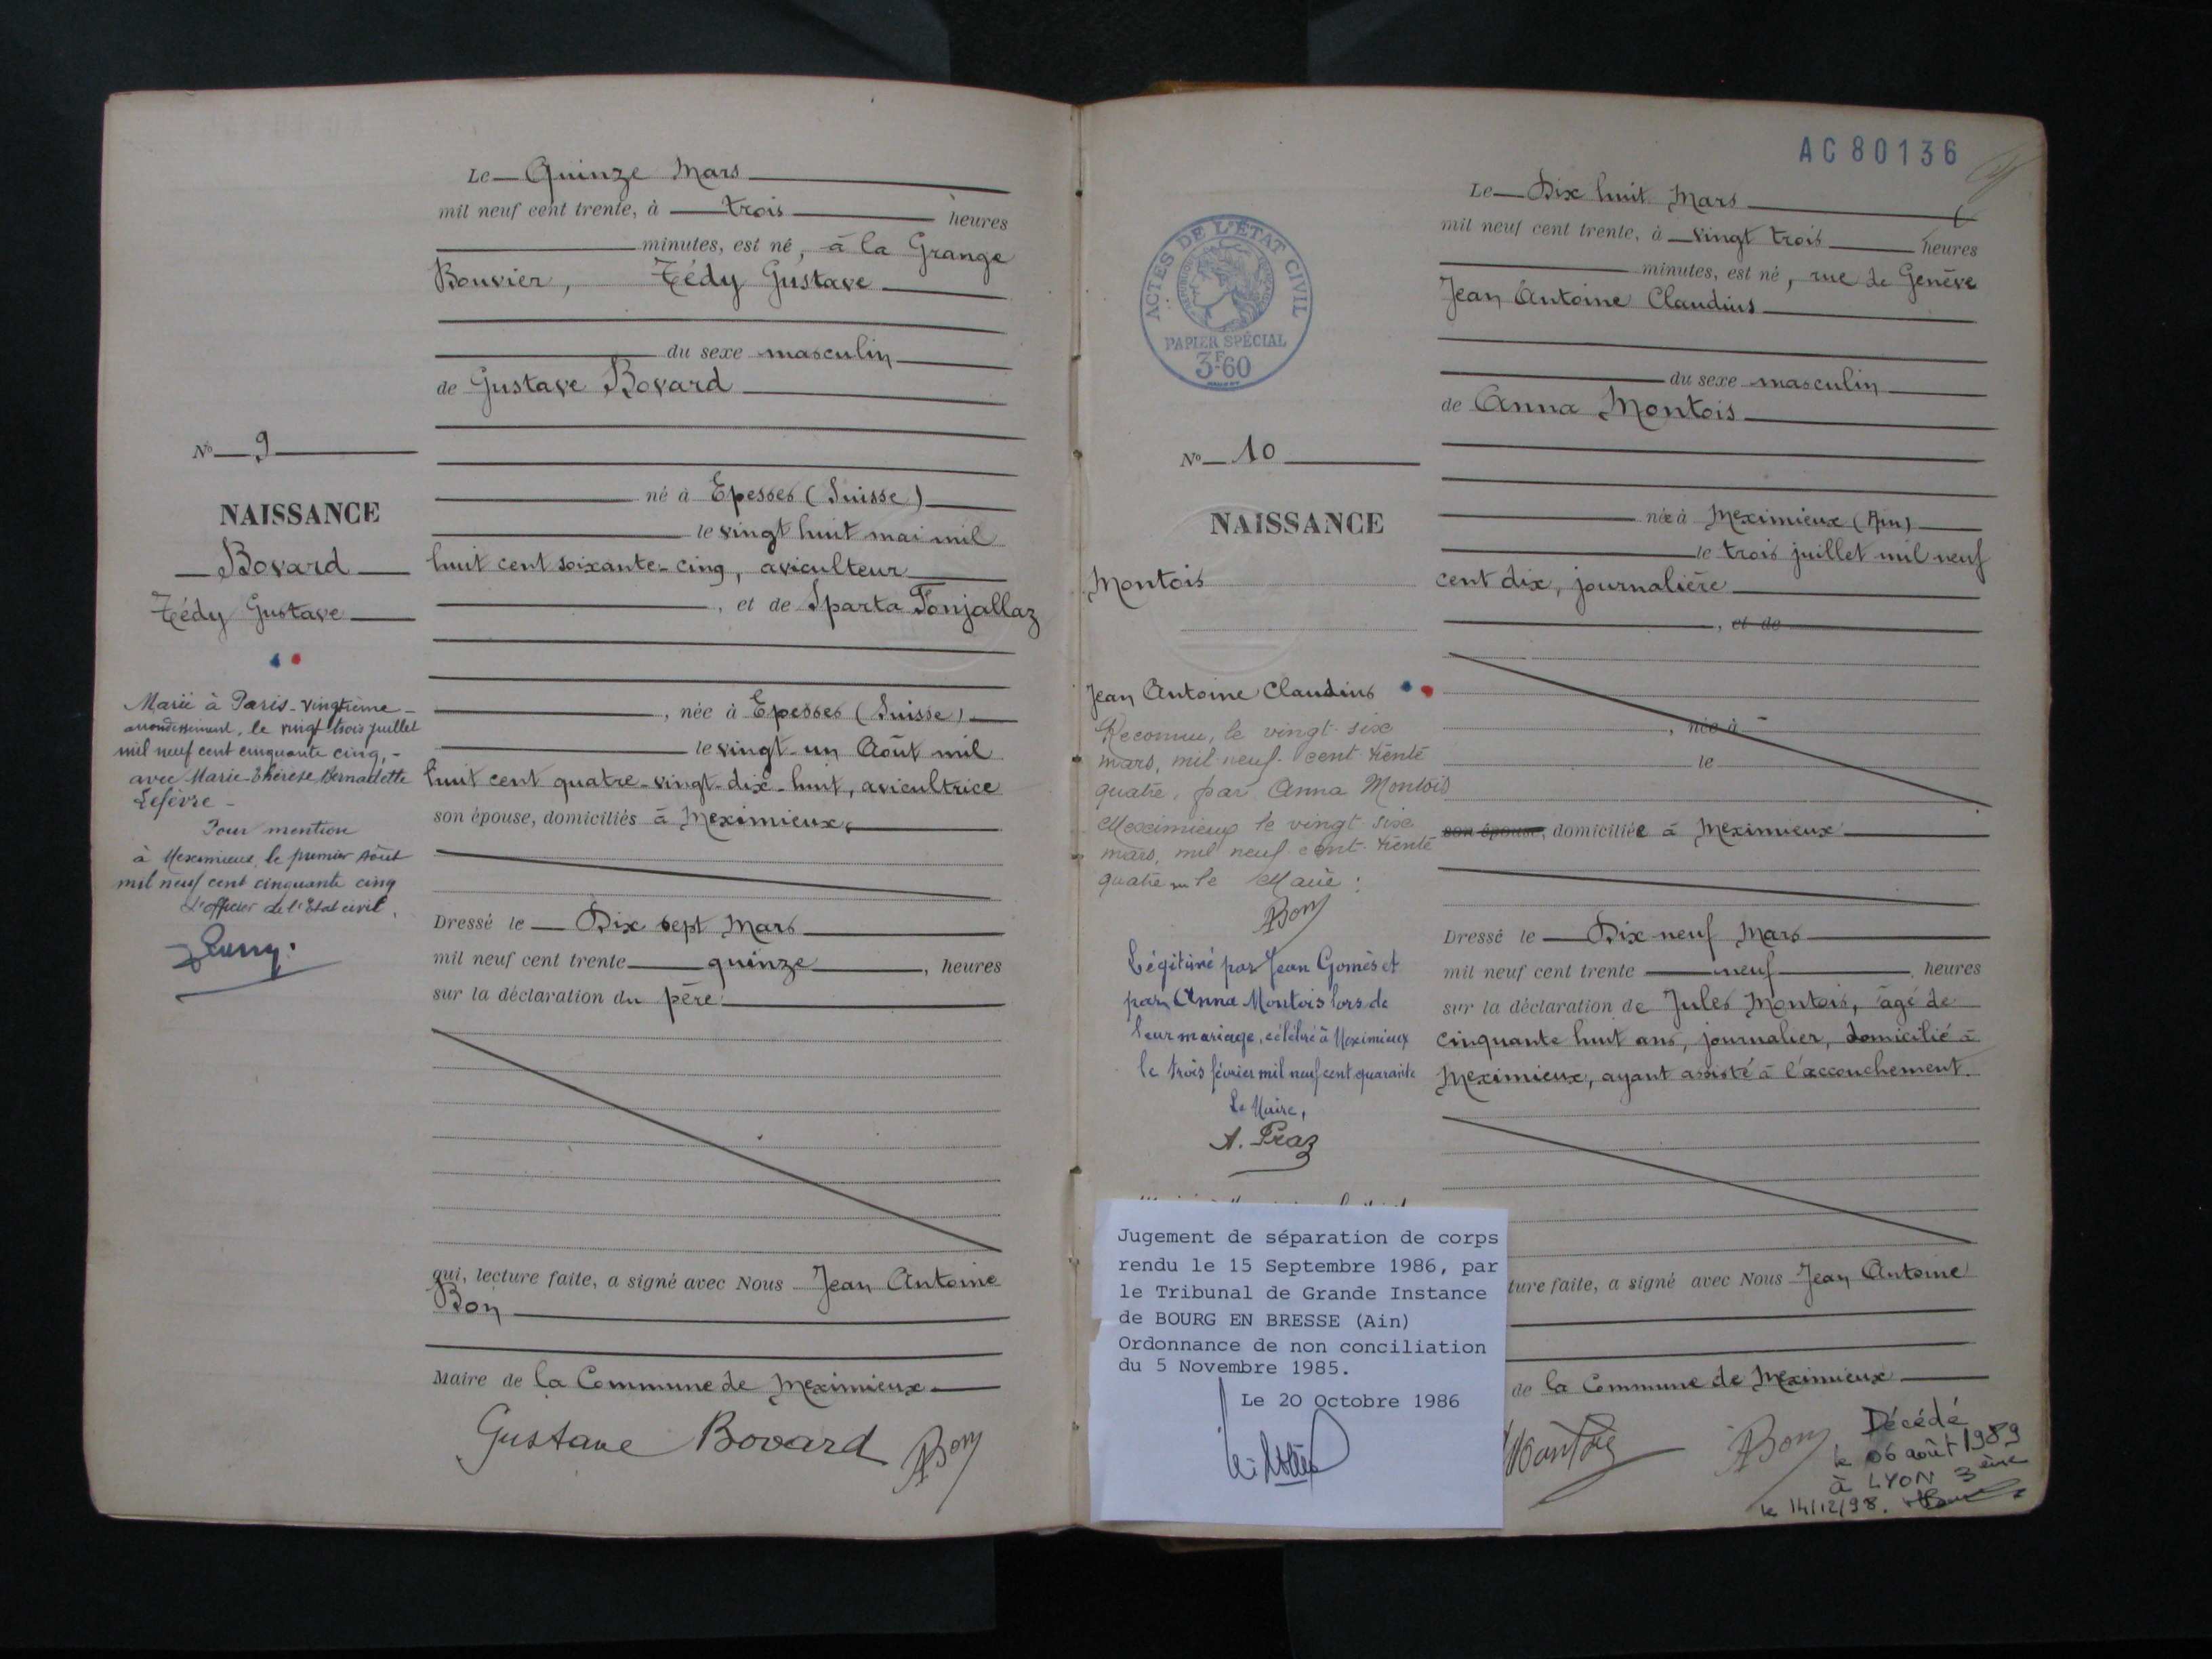 Le Quinze Mars
mil neuf cent trente, à trois heures
minutes, est né, à la Grange
Bouvier, Tédy Gustave
du sexe masculin
de Gustave Bovard
né à Epesses (Suisse)
le vingt huit mai mil
huit cent soixante-cinq, aviculteur
, et de Sparta Fonjallaz
, née à Epesses (Suisse)
le vingt-un Août mil
huit cent quatre-vingt-dix-huit, avicultrice
son épouse, domiciliés à Meximieux,
Dressé le Dix sept Mars
mil neuf cent trente quinze, heures
sur la déclaration du père
qui, lecture faite, a signé avec Nous Jean Antoine
Bon
Maire de la Commune de Meximieux
Gustave Bovard ABon
N° 9
NAISSANCE
Bovard
Tédy Gustave
Marié à Paris-vingtième-
arrondissement, le vingt trois juillet
mil neuf cent cinquante cinq,-
avec Marie-Thérèse Bernadette
Lefèvre-
Pour mention
à Meximieux, le premier Août
mil neuf cent cinquante cinq
L'officier de l'Etat civil,
AC 80136
Le Dix huit Mars
mil neuf cent trente, à vingt trois heures
minutes, est né, rue de Genève
Jean Antoine Claudius
du sexe masculin
de Anna Montois
née à Meximieux (Ain)
le trois juillet mil neuf
cent dix, journalière
, et de
, née à
le
son épouse, domiciliée à Meximieux
Dressé le Dix-neuf Mars
mil neuf cent trente neuf, heures
sur la déclaration de Jules Montois, âgé de
cinquante huit ans, journalier, domicilié à
Meximieux, ayant assisté à l'accouchement.
ture faite, a signé avec Nous Jean Antoine
de la Commune de Meximieux
Montois ABon
Décédé
le 06 août 1989
à LYON 3ème
le 14/12/98.
ACTES DE L'ÉTAT CIVIL
RÉPUBLIQUE FRANÇAISE
PAPIER SPÉCIAL
3F60
N° 10
NAISSANCE
Montois
Jean Antoine Claudius
Reconnu, le vingt-six
mars, mil neuf-cent-trente
quatre, par Anna Montois
Meximieux le vingt-six
mars, mil neuf-cent-trente
quatre le Maire:
ABon
Légitimé par Jean Gomès et
par Anna Montois lors de
leur mariage, célébré à Meximieux
le trois février mil neuf cent quarante
Le Maire,
A. Praz
Jugement de séparation de corps
rendu le 15 Septembre 1986, par
le Tribunal de Grande Instance
de BOURG EN BRESSE (Ain)
Ordonnance de non conciliation
du 5 Novembre 1985.
Le 20 Octobre 1986